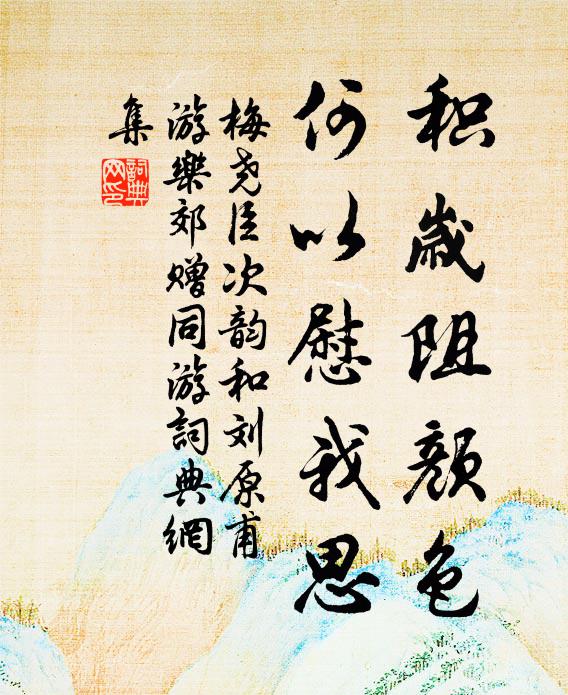 积岁阻颜色
何以慰我思
梅尧臣次韵和刘原甫
游樂郊赠同游詞典網
集
詞典网印